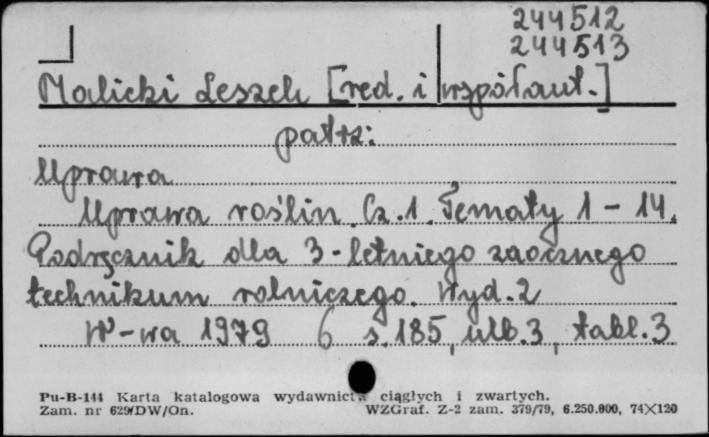 244512
244513
Malicki Leszek [red. i współaut.]
patrz:
Uprawa
Uprawa roślin. Cz.1. Tematy 1 - 14.
Podręcznik dla 3-letniego zaocznego
technikum rolniczego. Wyd.2
W-wa 1979 6 s.185, ulb.3, tabl.3
Pu-B-144 Karta katalogowa wydawnictw ciągłych i zwartych.
Zam. nr 629/DW/On. WZGraf. Z-2 zam. 379/79, 6.250.000, 74×120